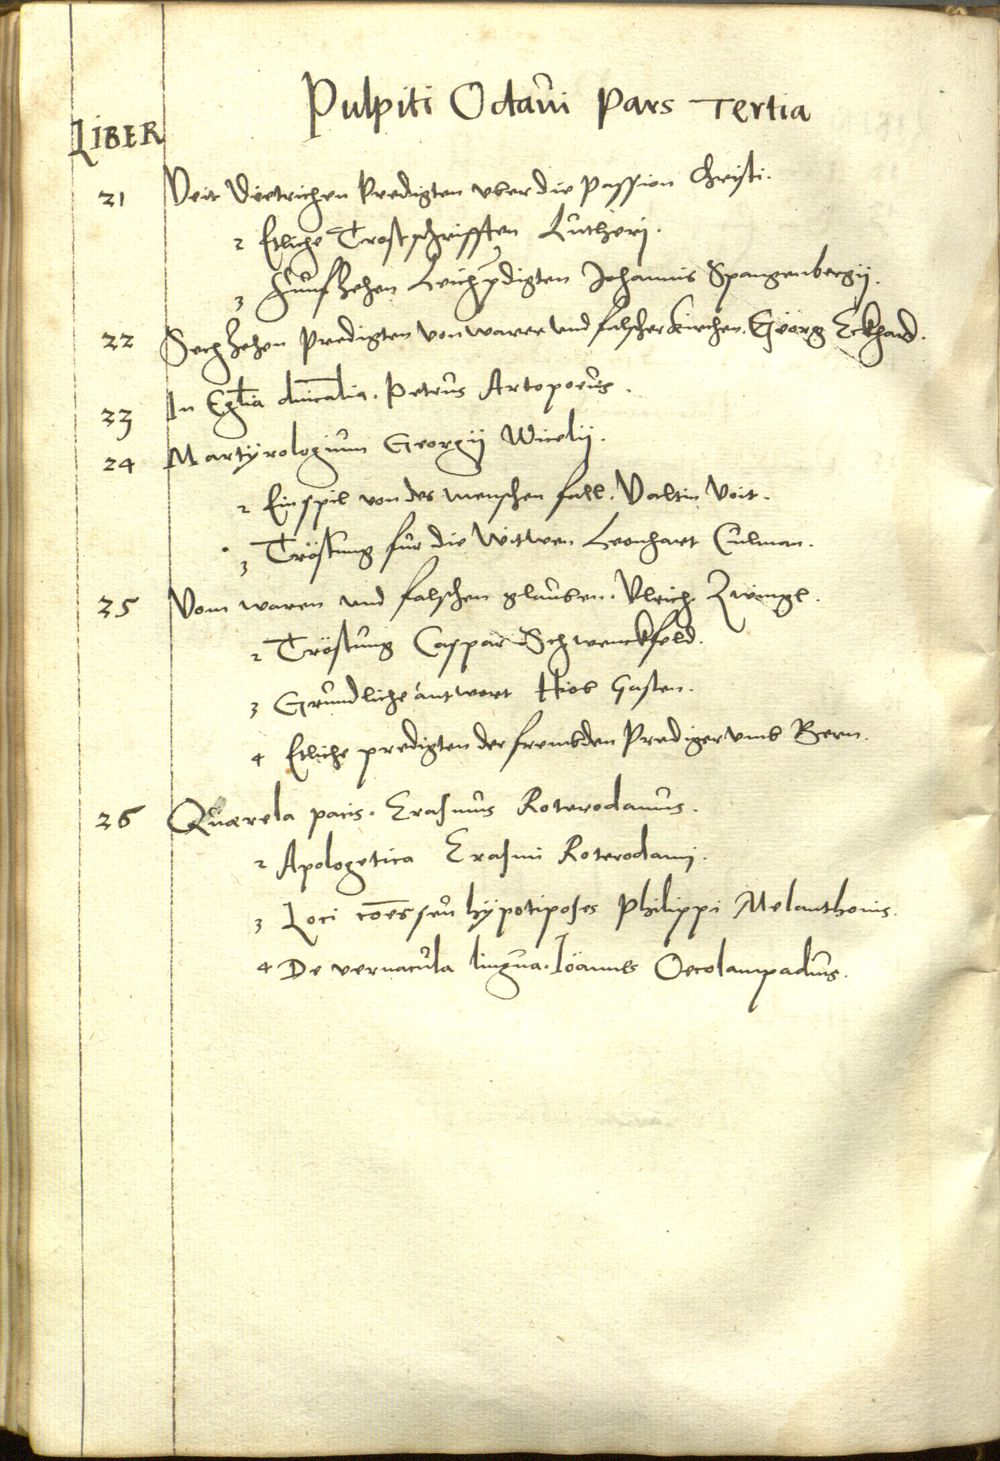 Pulpiti Octaui Pars Tertia
LIBER
21 Veit Dietrichen Predigten vber die Passion Christi.
2 Etliche Trostschrifften Lutheri.
3 Funfzehen Leichp̄digten Johannis Spangenbergij.
22 Sechzehen Predigten von warer vnd falscher Kirchen. Georg Eckhard.
23 In Eglia dnicalia. Petrus Artopoeus.
24 Martyrologium Georgij Wicelij.
2 Ein spil von des menschen fahl. Valtin Voit.
3 Tröstung für die Witwen Leonhart Culman.
25 Vom waren vnd falschen glauben. Vlrich Zwingl.
2 Tröstung Caspar Schwenckfeld.
3 Grundliche antwort Hiob Gasten.
4 Etliche predigten der frembden Prediger vmb Bern.
26 Quærela pacis. Erasmus Roterodamus.
2 Apologetica Erasmi Roterodami.
3 Loci cōes seu hypotiposes Philippi Melanthonis.
4 De vernacula lingua. Ioannes Oecolampadius.